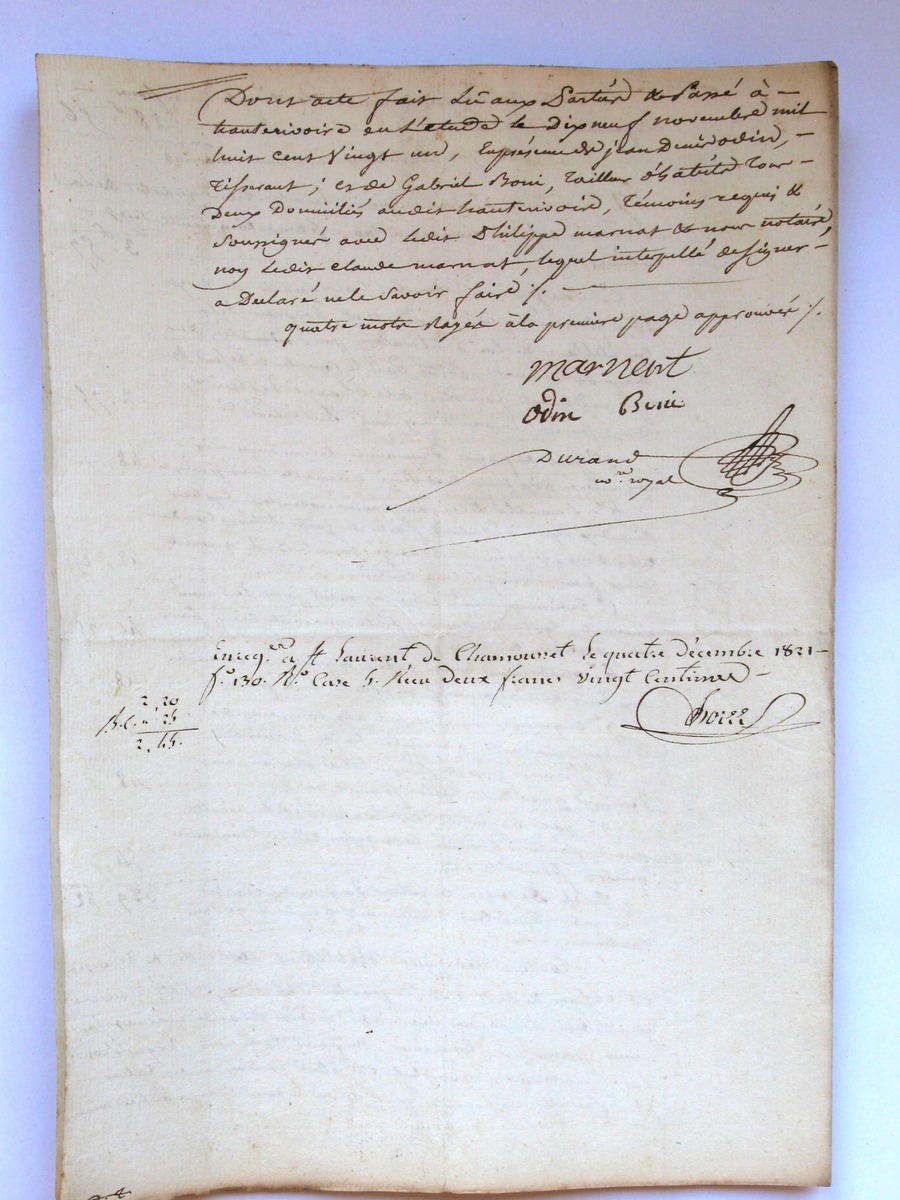 Dont acte fait Lû aux Parties & Passé à
hauterivoire en L'etude le Dix neuf novembre mil
huit cent Vingt un, En présence de jean Denis odin,
Tisserant; et de Gabriel Boni, Tailleur d'habits Tous
Deux Domiciliés audit hauterivoire, Témoins requis &
Soussignés avec ledit Philippe marnat & nous notaire,
non ledit claude marnat, lequel interpellé de signer
a Déclaré ne le Savoir faire /.
quatre mots Rayés à la première page approuvés /.
marnent
odin Boni
Durand
no.re royal
Enreg.é à St Laurent de Chamousset le quatre Décembre 1821
f.o 130. R.o Case 5. Reçu deux francs vingt Centimes
2,20
25
2,45.